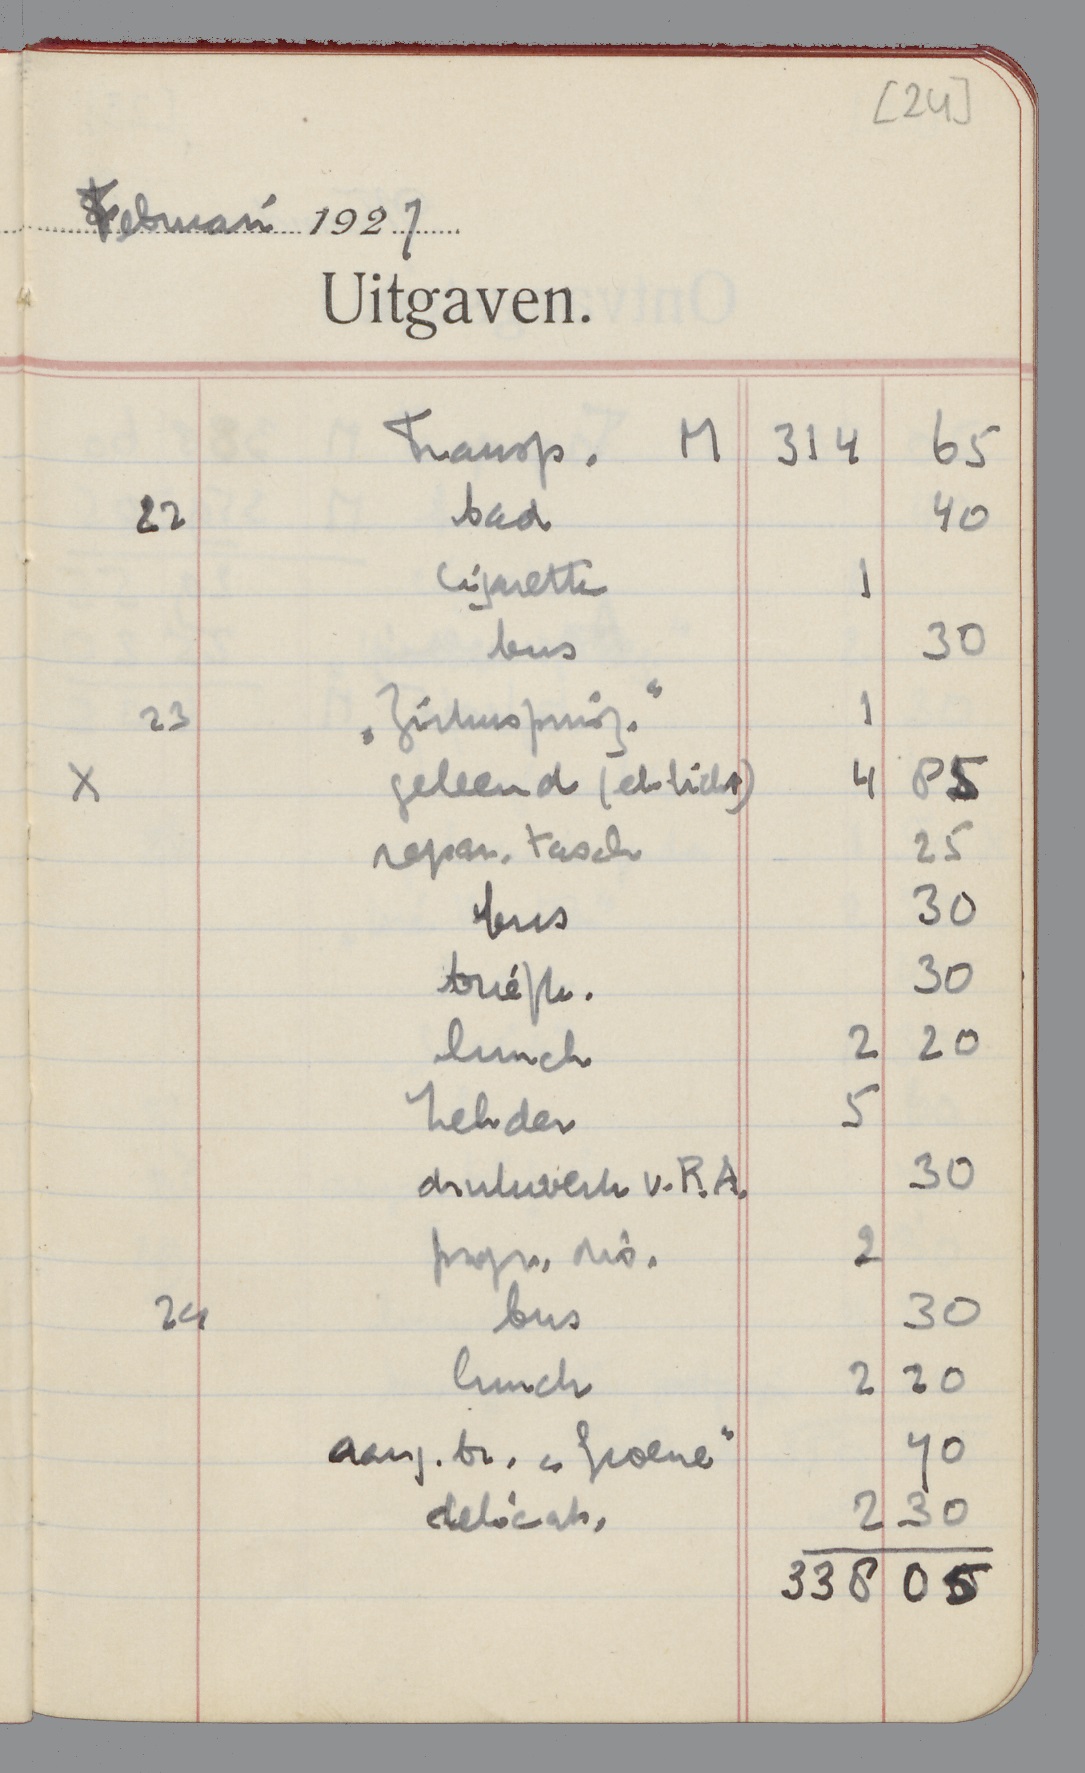 [24]
Februari 1927
Uitgaven.
Transp. M 314 65
22 bad 40
cigarette 1
bus 30
23 „Zirkusprinz.“ 1
X geleend (el. licht) 4 85
repar. tasch 25
bus 30
teléph. 30
lunch 2 20
5
drukwerk v. R.A. 30
progr. 2
24 bus 30
lunch 2 20
aang. br. „Groene“ 70
delicat. 2 30
338 05